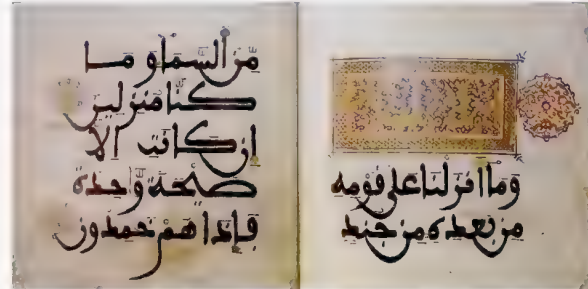 وما أنزلنا على قومه
من بعده من جند
من السماء وما
كنا منزلين
إن كانت إلا
صيحة وٰحدة
فإذا هم خٰمدون